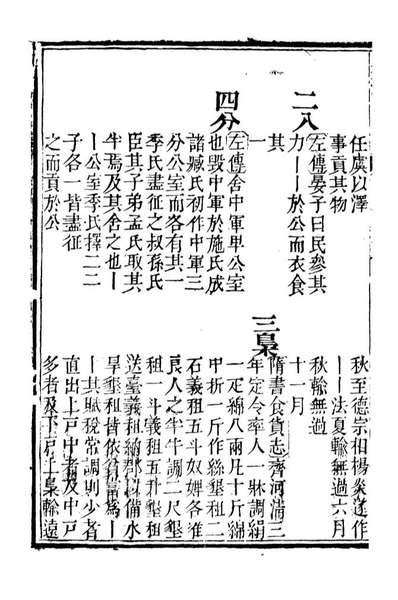 任虞以澤
事貢其物
二八
左傳晏子曰民參其
力丨丨於公而衣食
其
一
四分
左傳舍中軍卑公室
也毀中軍於施氏成
諸臧氏初作中軍三
分公室而各有其一
季氏盡征之叔孫氏
臣其子弟孟氏取其
半焉及其舍之也丨
丨公室季氏擇二二
子各一皆盡征
之而貢於公
秋至德宗相楊炎遂作
丨丨法夏輸無過六月
秋輸無過
十一月
三梟
隋書食貨志齊河淸三
年定令率人一牀調絹
一疋綿八兩凡十斤綿
中折一斤作絲墾租二
石義租五斗奴婢各准
良人之半牛調二尺墾
租一斗義租五升墾租
送臺義租納郡以備水
旱墾租皆依貧富爲丨
丨其賦稅常調則少者
直出上戶中者及中戶
多者及下戶上梟輸遠